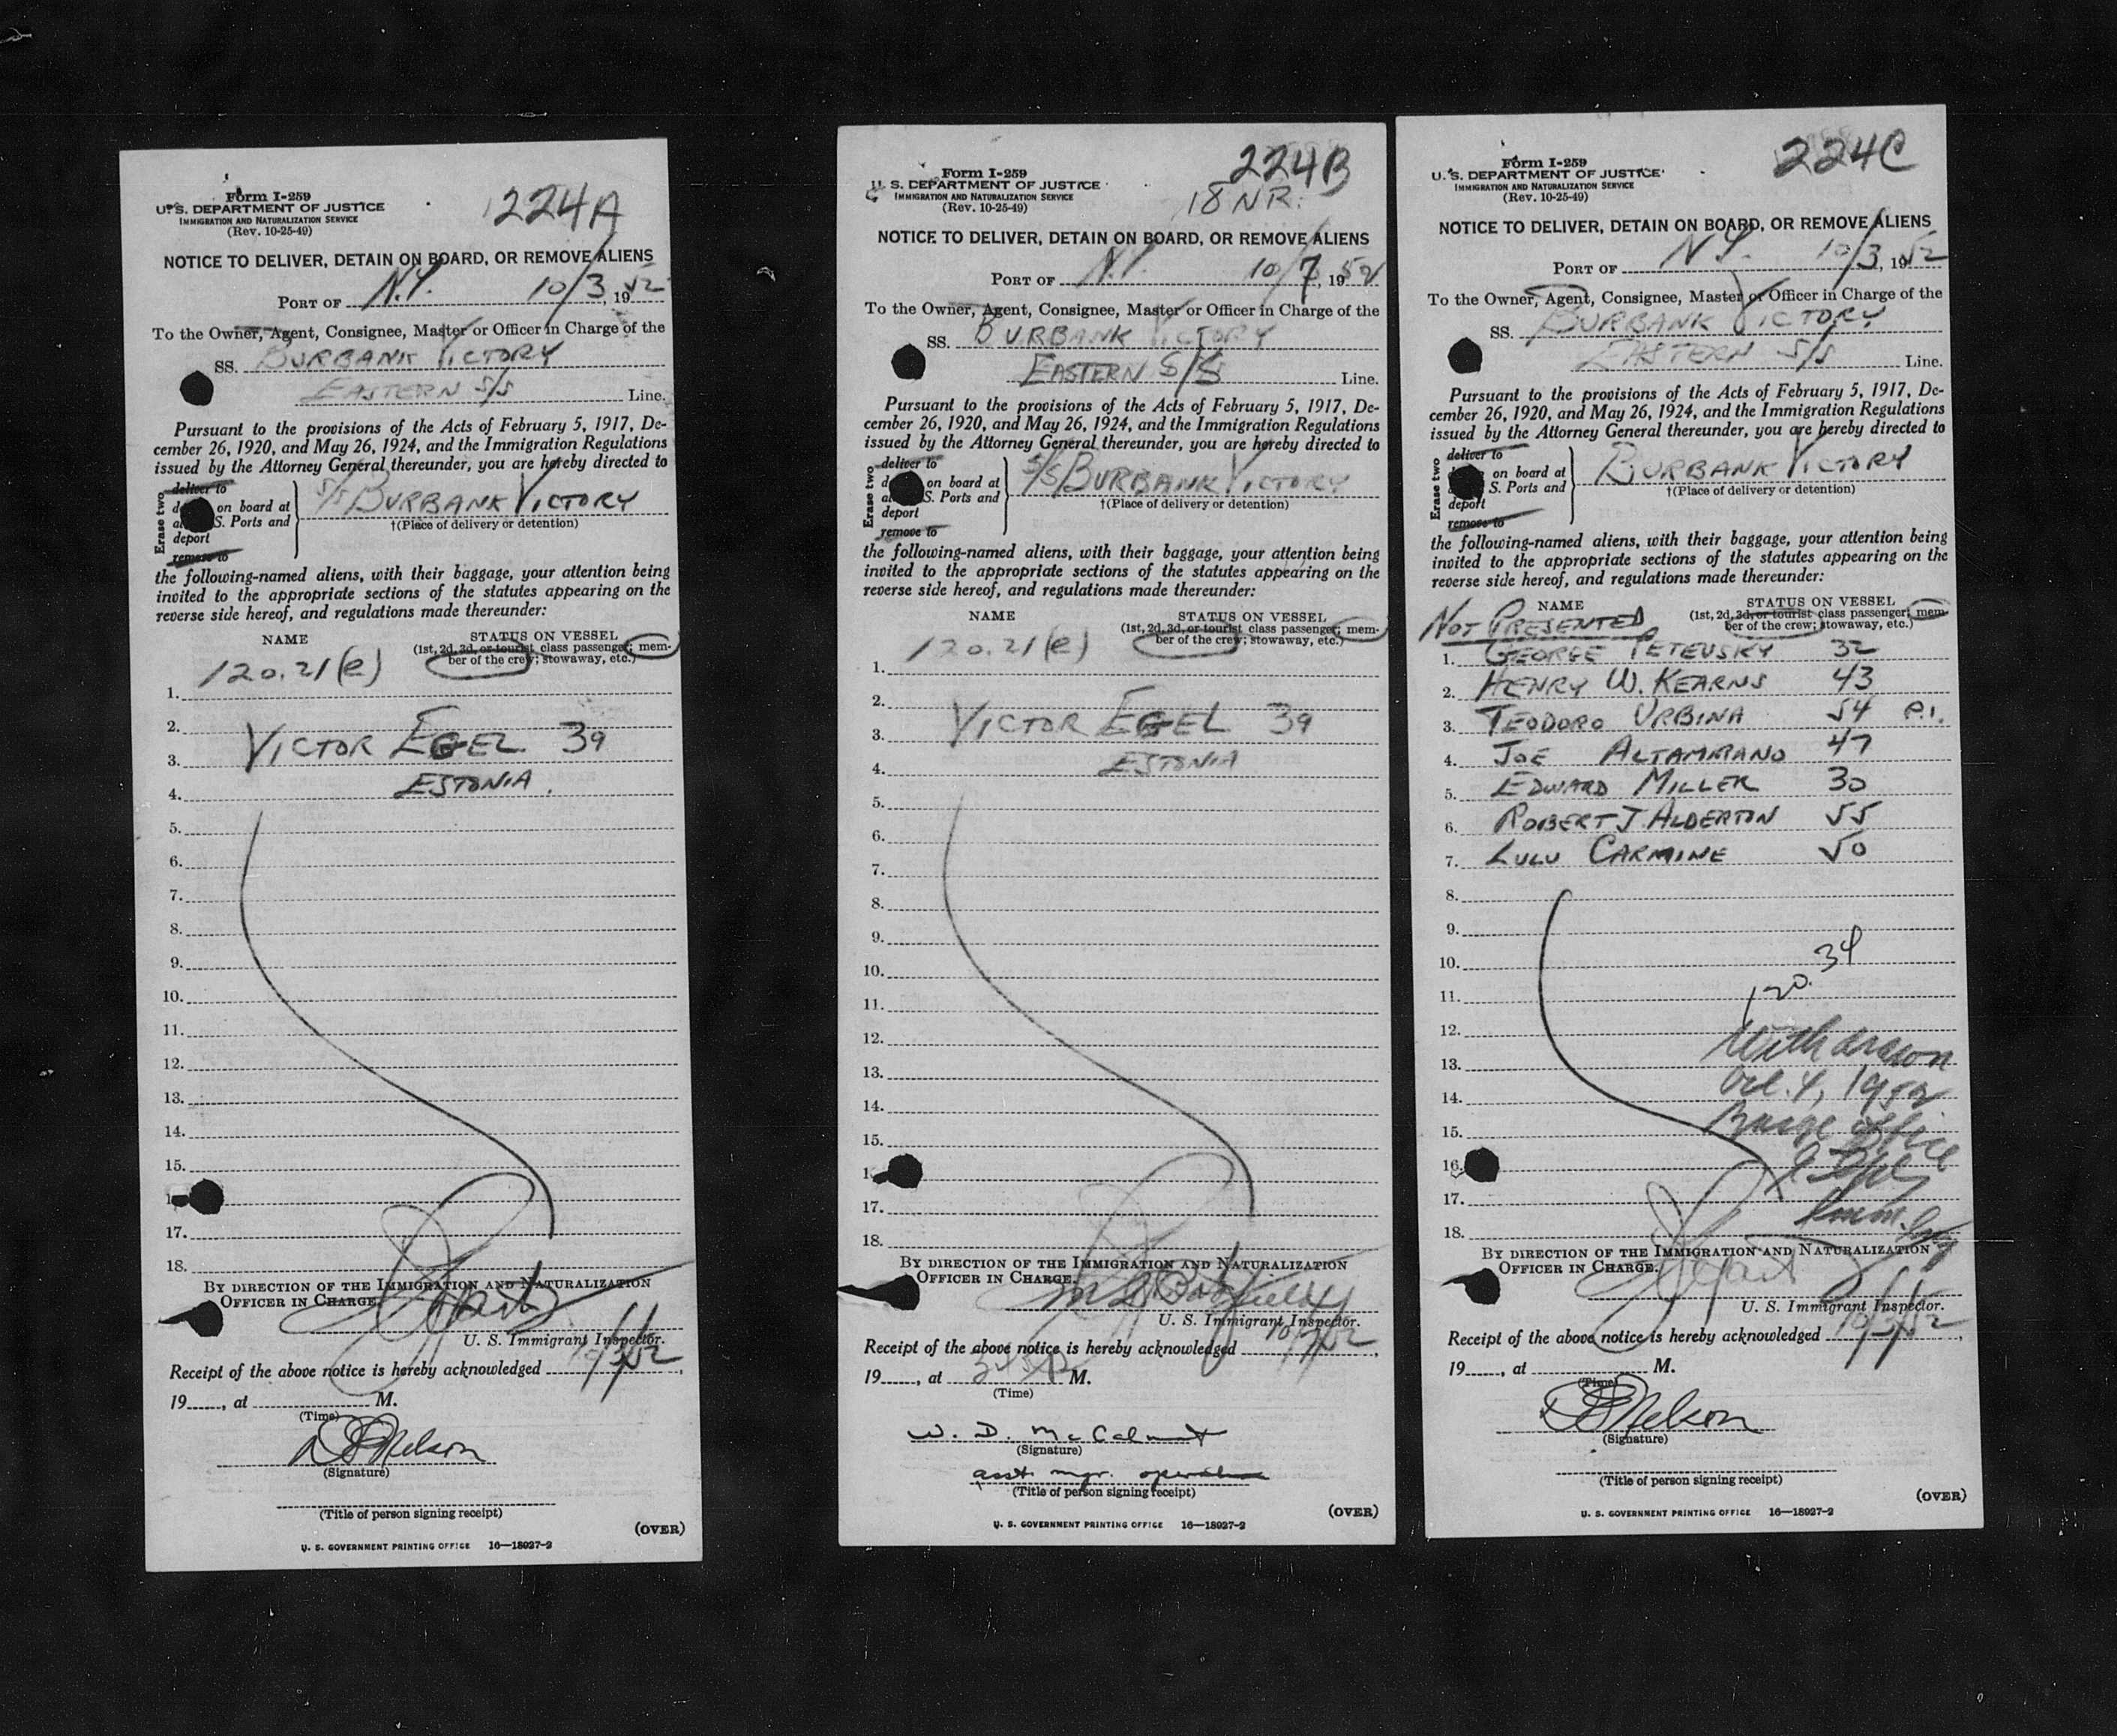 224A
Form I-259
U. S. DEPARTMENT OF JUSTICE
IMMIGRATION AND NATURALIZATION SERVICE
(Rev. 10-25-49)
NOTICE TO DELIVER, DETAIN ON BOARD, OR REMOVE ALIENS
PORT OF N.Y. 10/3, 1952
To the Owner, Agent, Consignee, Master or Officer in Charge of the
SS. BURBANK VICTORY
EASTERN S/S Line.
Pursuant to the provisions of the Acts of February 5, 1917, De-
cember 26, 1920, and May 26, 1924, and the Immigration Regulations
issued by the Attorney General thereunder, you are hereby directed to
Erase two
deliver to
on board at
S. Ports and
deport
remove to
S/S BURBANK VICTORY
†(Place of delivery or detention)
the following-named aliens, with their baggage, your attention being
invited to the appropriate sections of the statutes appearing on the
reverse side hereof, and regulations made thereunder:
NAME STATUS ON VESSEL
(1st, 2d, 3d, or tourist class passenger; mem-
ber of the crew; stowaway, etc.)
120.21(e)
1.
2.
3. VICTOR EGEL 39
4. ESTONIA.
5.
6.
7.
8.
9.
10.
11.
12.
13.
14.
15.
17.
18.
BY DIRECTION OF THE IMMIGRATION AND NATURALIZATION
OFFICER IN CHARGE.
U. S. Immigrant Inspector.
Receipt of the above notice is hereby acknowledged 10/3/52,
19, at M.
(Time)
Nelson
(Signature)
(Title of person signing receipt)
(OVER)
U. S. GOVERNMENT PRINTING OFFICE 16—18927-2
224B
18 NR.
Form I-259
U. S. DEPARTMENT OF JUSTICE
IMMIGRATION AND NATURALIZATION SERVICE
(Rev. 10-25-49)
NOTICE TO DELIVER, DETAIN ON BOARD, OR REMOVE ALIENS
PORT OF N.Y. 10/7, 1952
To the Owner, Agent, Consignee, Master or Officer in Charge of the
SS. BURBANK VICTORY
EASTERN S/S Line.
Pursuant to the provisions of the Acts of February 5, 1917, De-
cember 26, 1920, and May 26, 1924, and the Immigration Regulations
issued by the Attorney General thereunder, you are hereby directed to
Erase two
deliver to
on board at
S. Ports and
deport
remove to
S/S BURBANK VICTORY
†(Place of delivery or detention)
the following-named aliens, with their baggage, your attention being
invited to the appropriate sections of the statutes appearing on the
reverse side hereof, and regulations made thereunder:
NAME STATUS ON VESSEL
(1st, 2d, 3d, or tourist class passenger; mem-
ber of the crew; stowaway, etc.)
1. 120.21(e)
2.
3. VICTOR EGEL 39
4. ESTONIA
5.
6.
7.
8.
9.
10.
11.
12.
13.
14.
15.
17.
18.
BY DIRECTION OF THE IMMIGRATION AND NATURALIZATION
OFFICER IN CHARGE.
U. S. Immigrant Inspector.
Receipt of the above notice is hereby acknowledged 10/7/52,
19, at M.
(Time)
W. D. McCalmont
(Signature)
asst. mgr. operations
(Title of person signing receipt)
(OVER)
U. S. GOVERNMENT PRINTING OFFICE 16—18927-2
224C
Form I-259
U. S. DEPARTMENT OF JUSTICE
IMMIGRATION AND NATURALIZATION SERVICE
(Rev. 10-25-49)
NOTICE TO DELIVER, DETAIN ON BOARD, OR REMOVE ALIENS
PORT OF N.Y. 10/3, 1952
To the Owner, Agent, Consignee, Master or Officer in Charge of the
SS. BURBANK VICTORY
EASTERN S/S Line.
Pursuant to the provisions of the Acts of February 5, 1917, De-
cember 26, 1920, and May 26, 1924, and the Immigration Regulations
issued by the Attorney General thereunder, you are hereby directed to
Erase two
deliver to
on board at
S. Ports and
deport
remove to
BURBANK VICTORY
†(Place of delivery or detention)
the following-named aliens, with their baggage, your attention being
invited to the appropriate sections of the statutes appearing on the
reverse side hereof, and regulations made thereunder:
NAME STATUS ON VESSEL
(1st, 2d, 3d, or tourist class passenger; mem-
ber of the crew; stowaway, etc.)
NOT PRESENTED
1. GEORGE PETEUSKY 32
2. HENRY W. KEARNS 43
3. TEODORO URBINA 54 P.I.
4. JOE ALTAMIRANO 47
5. EDWARD MILLER 30
6. ROBERT J ALDERTON 55
7. LULU CARMINE 50
8.
9.
10.
11. 120.34
12.
13. Withdrawn
14. Oct. 4, 1952
15. Barge Office
16.
17. Imm. Insp
18.
BY DIRECTION OF THE IMMIGRATION AND NATURALIZATION
OFFICER IN CHARGE.
U. S. Immigrant Inspector.
Receipt of the above notice is hereby acknowledged 10/3/52,
19, at M.
(Time)
Nelson
(Signature)
(Title of person signing receipt)
(OVER)
U. S. GOVERNMENT PRINTING OFFICE 16—18927-2